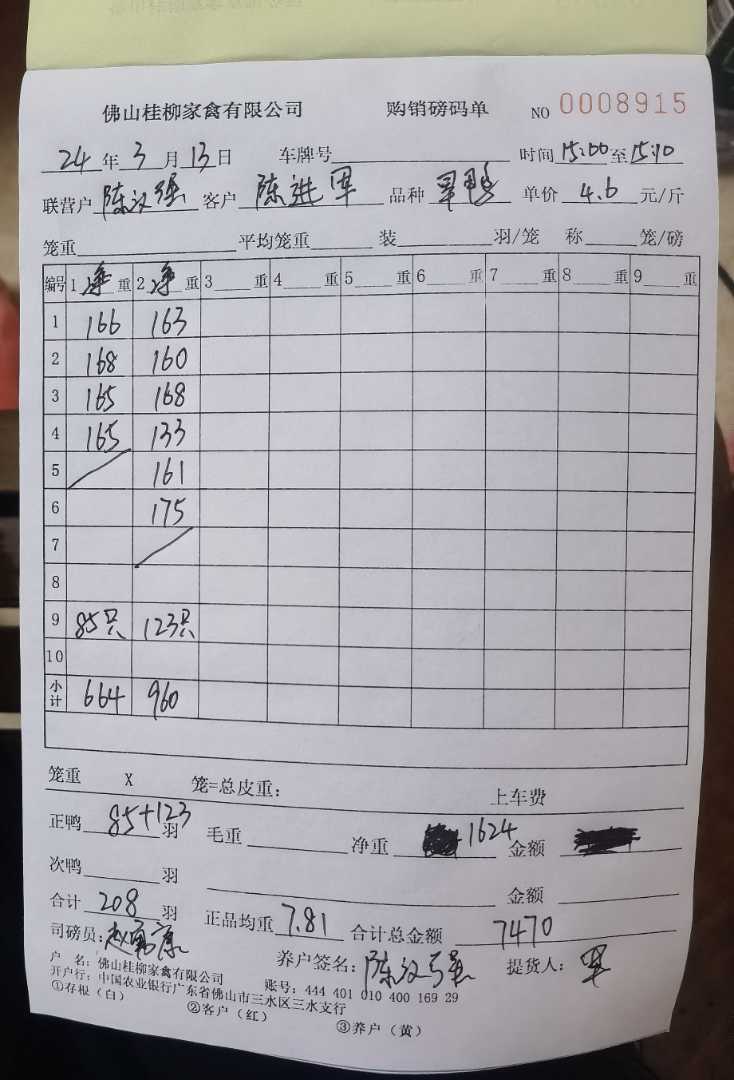 佛山桂柳家禽有限公司 购销磅码单 NO 0008915
24年3月13日 车牌号 时间15:00至15:10
联营户 陈汉强 客户 陈进军 品种 单价 4.6 元/斤
笼重 平均笼重 装 羽/笼 称 笼/磅
编号 1净重 2净重 3 重 4 重 5 重 6 重 7 重 8 重 9 重
1 166 163
2 168 160
3 165 168
4 165 133
5 161
6 175
7
8
9 85只 123只
10
小计 664 960
笼重 X 笼=总皮重： 上车费
正鸭 85+123 羽 毛重 净重 1624 金额
次鸭 羽 金额
合计 208 羽 正品均重 7.81 合计总金额 7470
司磅员： 养户签名：陈汉强 提货人：军
户 名：佛山桂柳家禽有限公司 账号：444 401 010 400 169 29
开户行：中国农业银行广东省佛山市三水区三水支行
①存根（白） ②客户（红） ③养户（黄）